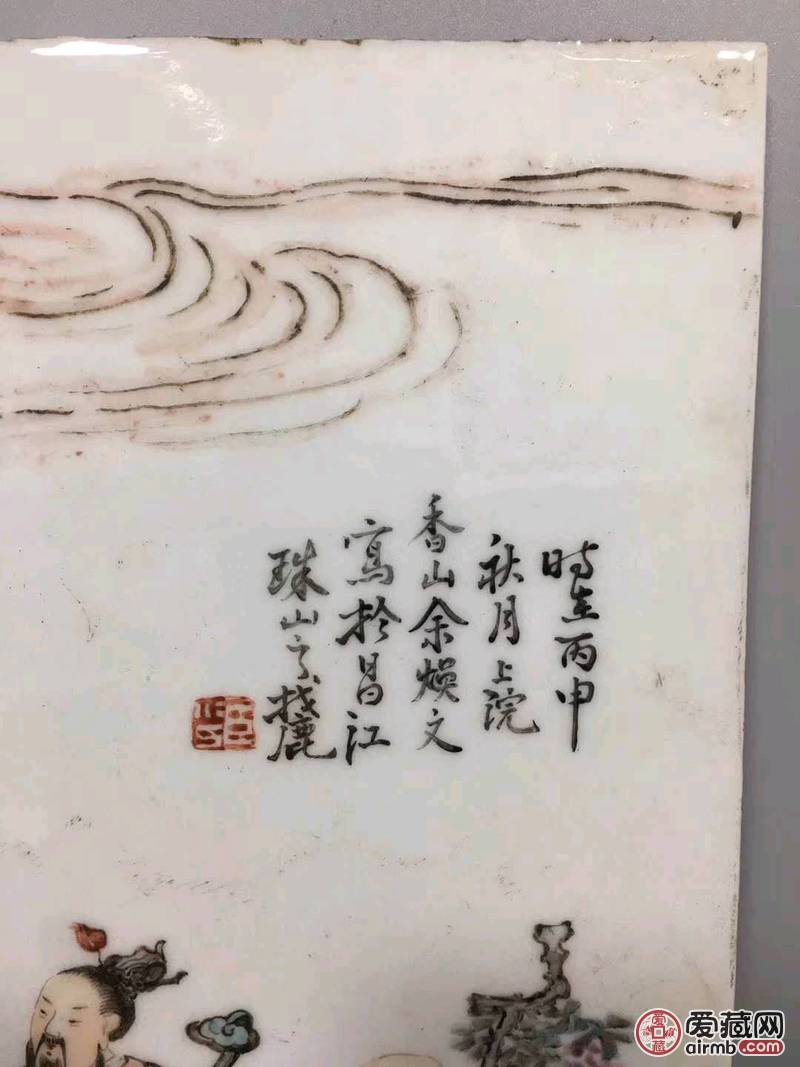 時在丙申
秋月上浣
香山余焕文
寫於昌江
珠山之麓
爱藏网
airmb.com